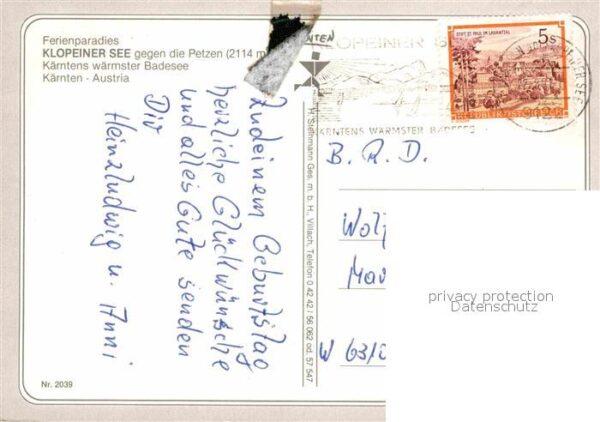 Ferienparadies
KLOPEINER SEE gegen die Petzen (2114 m
Kärntens wärmster Badesee
Kärnten - Austria
Zu deinem Geburtstag
herzliche Glückwünsche
und alles Gute senden
Dir
Heinzludwig u. Anni
Nr. 2039
H. Slethmann Ges. m. b. H., Villach, Telefon 0 42 42 / 56 062 od. 57 547
KÄRNTEN
KLOPEINER S
KÄRNTENS WÄRMSTER BADESEE
STIFT ST. PAUL IM LAVANTTAL
5S
REPUBLIK ÖSTERREICH
B. R. D.
Wol
Ma
W 63
privacy protection
Datenschutz